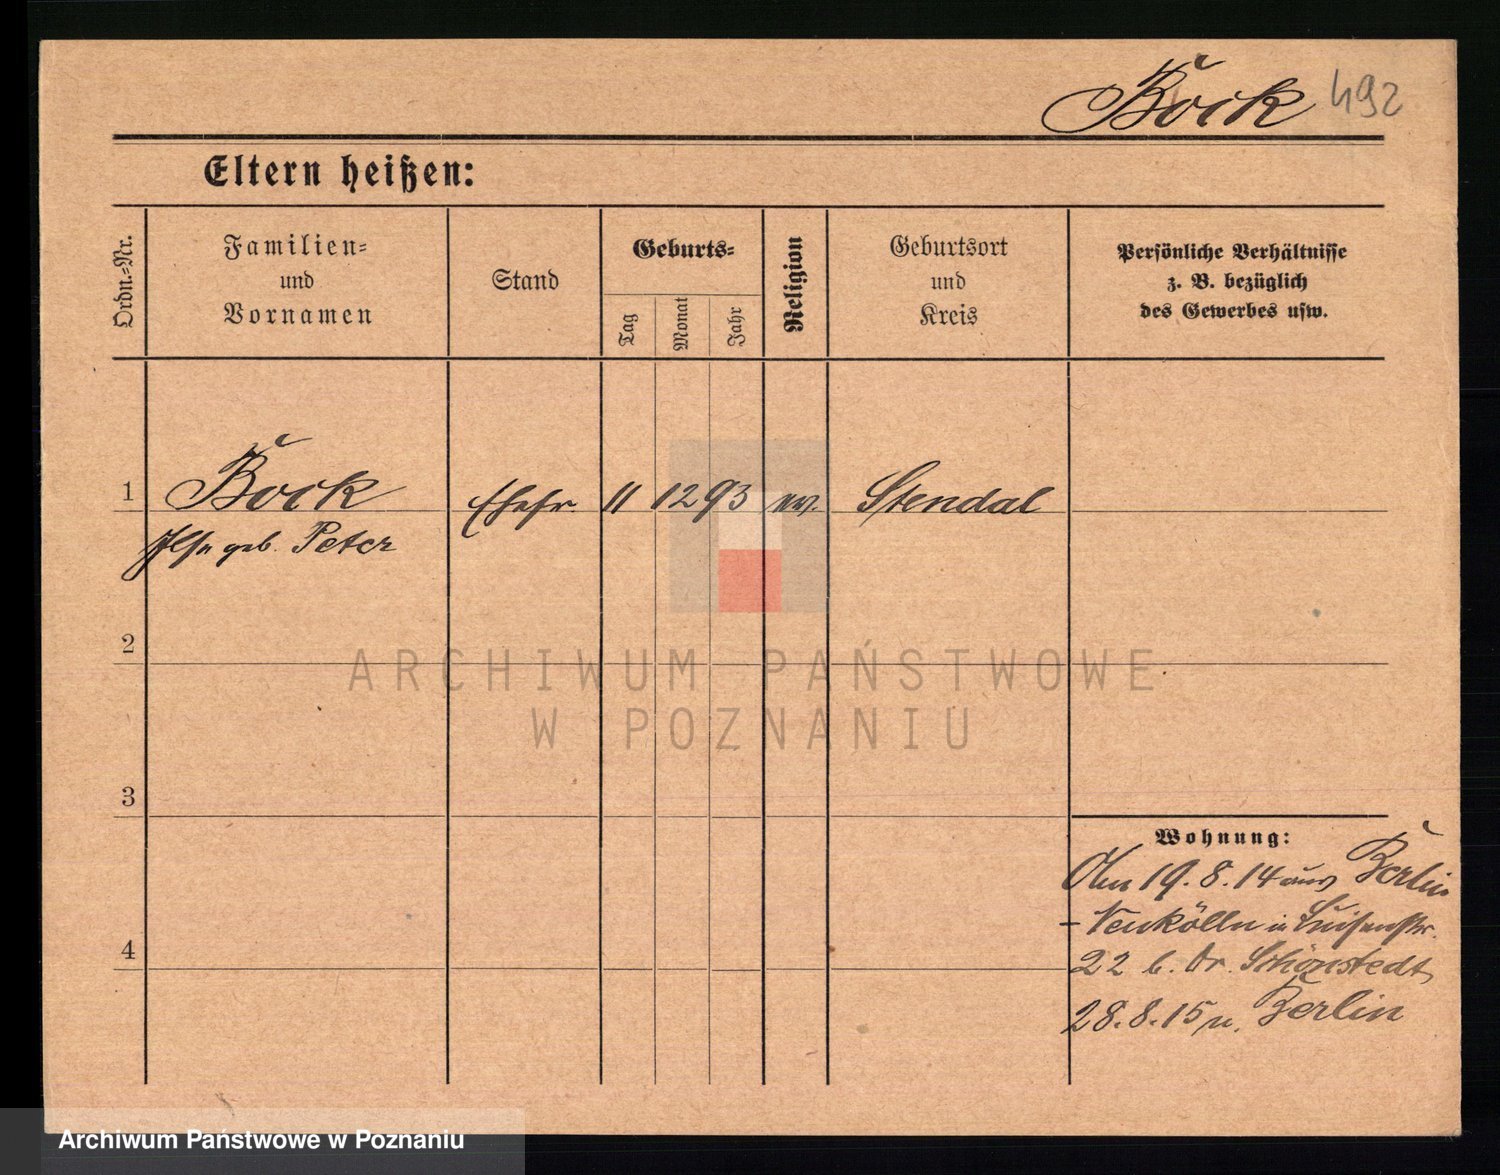 Bock 492
Eltern heißen:
Ordn.=Nr.
Familien=
und
Vornamen
Stand
Geburts=
Tag
Monat
Jahr
Religion
Geburtsort
und
Kreis
Persönliche Verhältnisse
z. B. bezüglich
des Gewerbes usw.
1 Bock Ehefr. 11 12 93 ev. Stendal
Ilse geb. Peter
2
3
4
Wohnung:
19.8.14 aus Berlin
-Neukölln in Luisenstr.
22 b. Dr. Schönstedt,
28.8.15 n. Berlin
ARCHIWUM PAŃSTWOWE
W POZNANIU
Archiwum Państwowe w Poznaniu